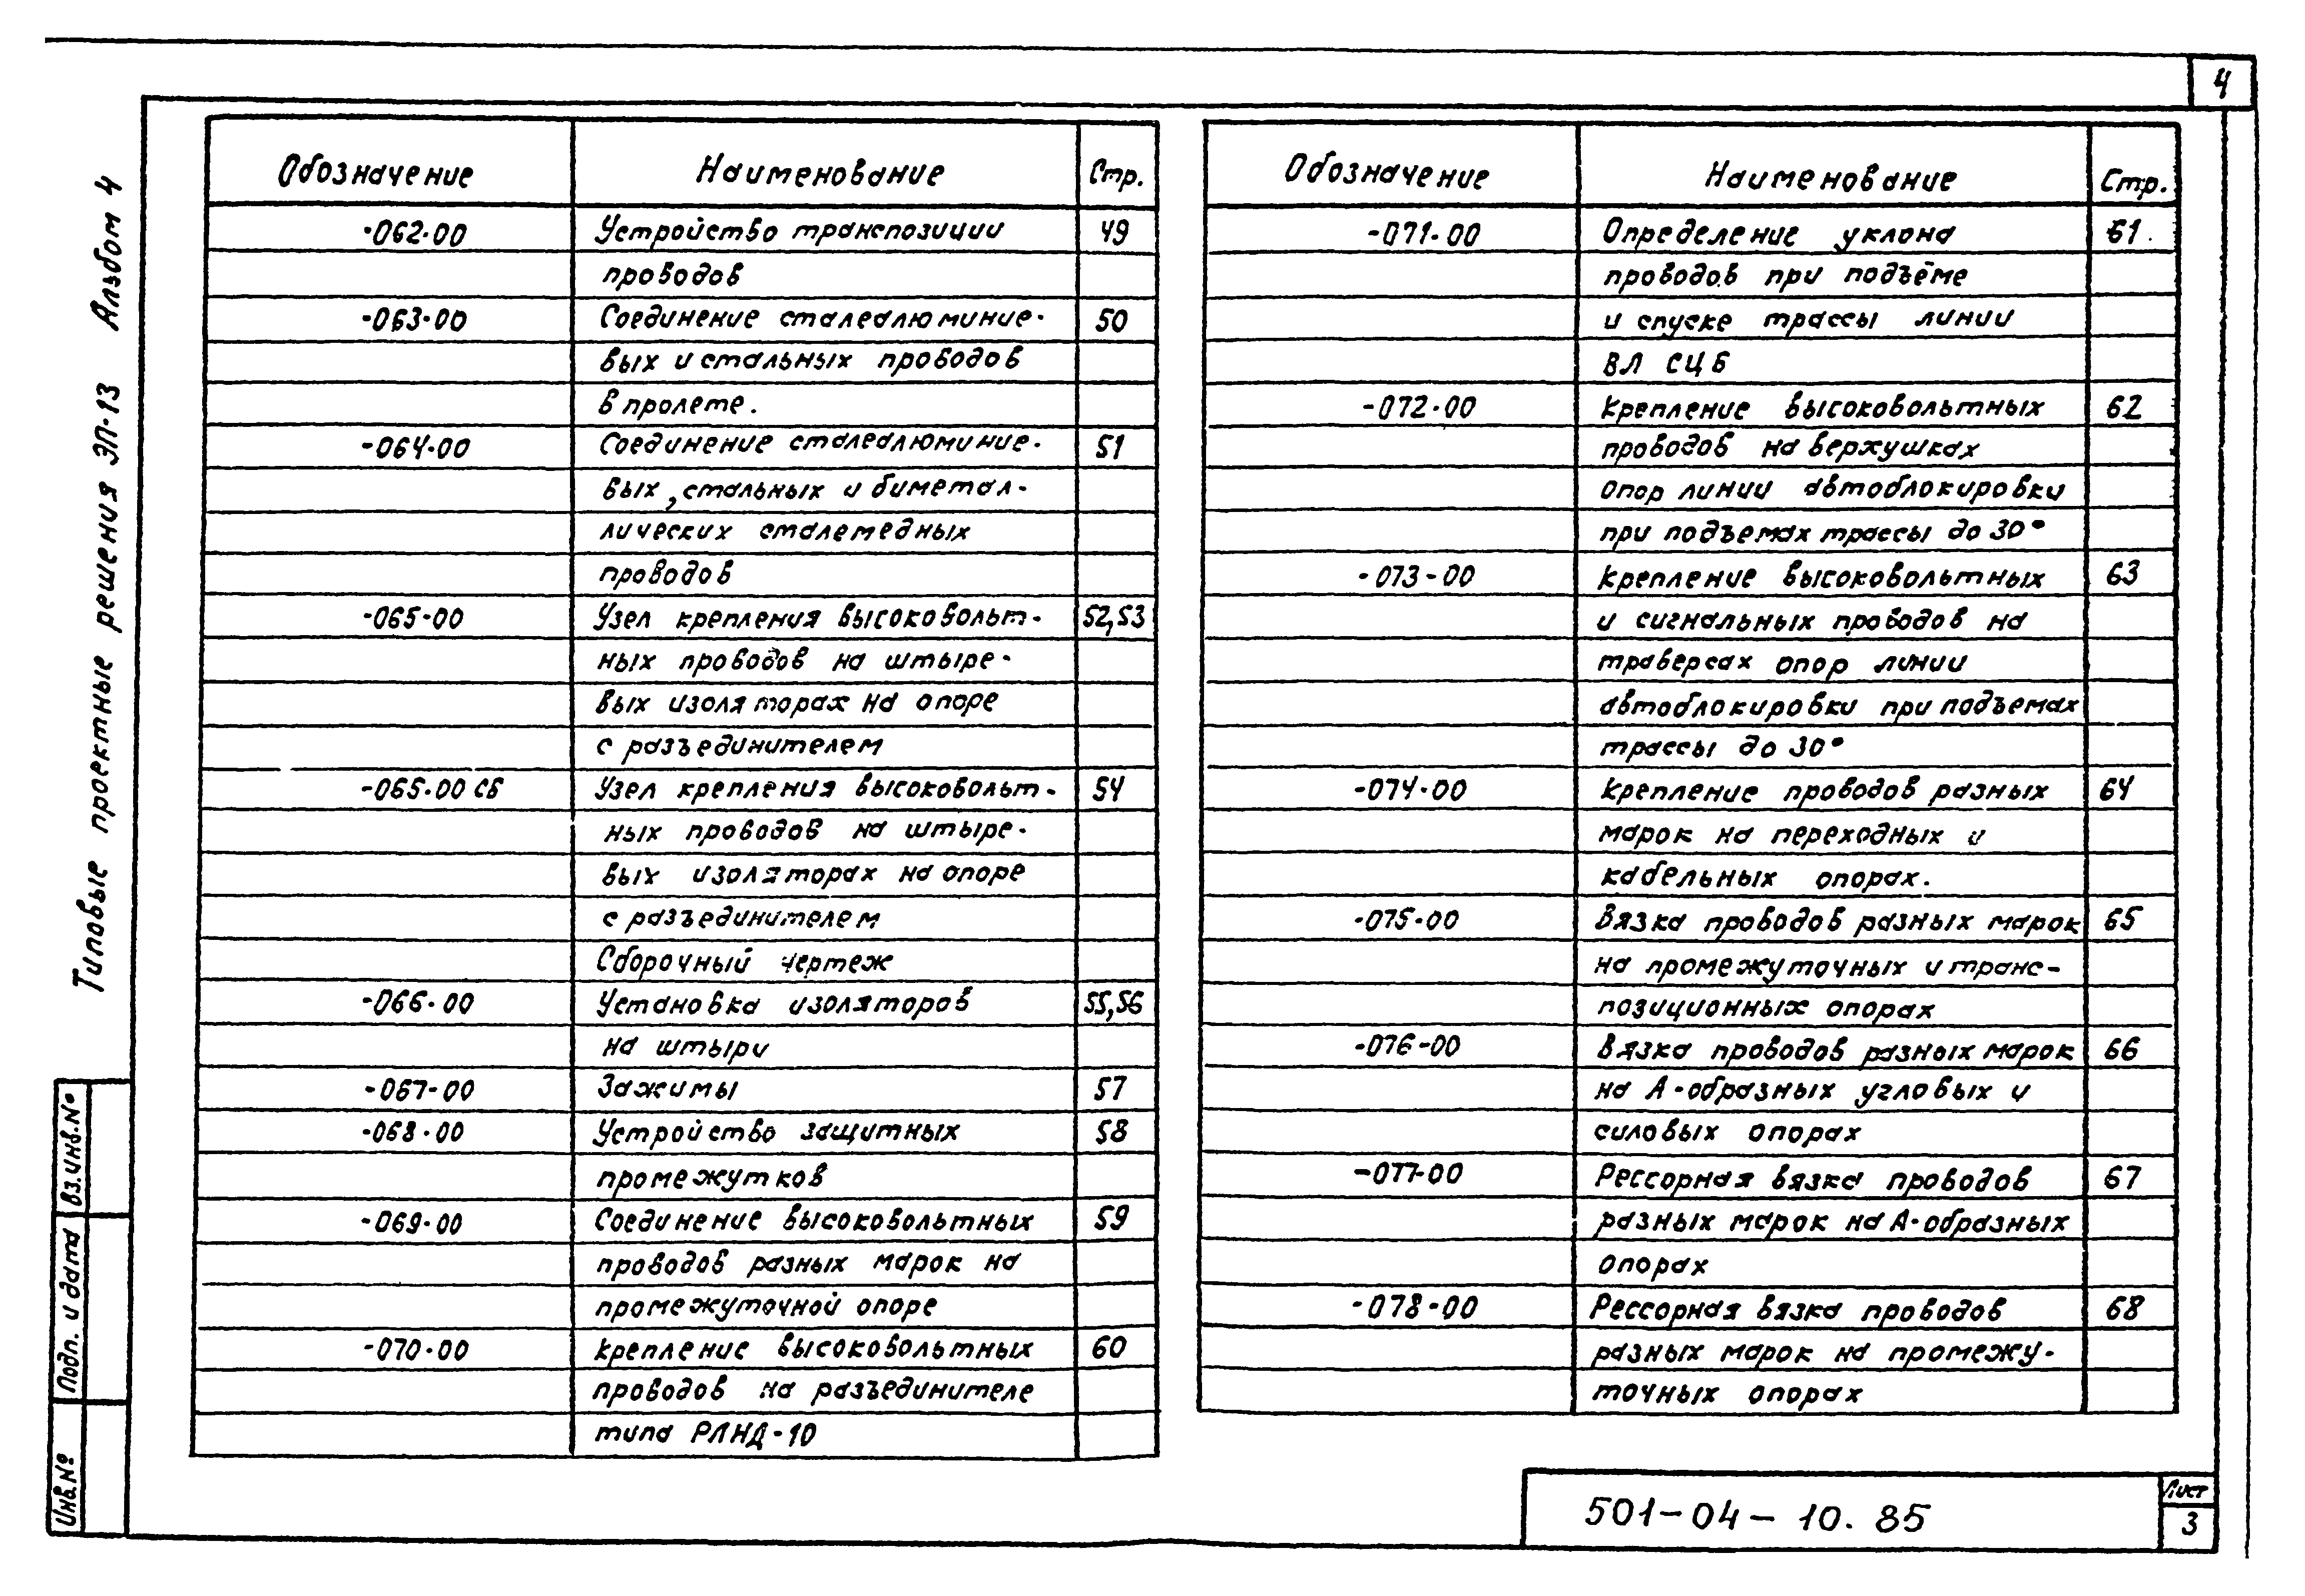 4
Типовые проектные решения ЭП-13 Альбом 4
Обозначение Наименование Стр.
-062-00 Устройство транспозиции 49
проводов
-063-00 Соединение сталеалюминие- 50
вых и стальных проводов
в пролете.
-064-00 Соединение сталеалюминие- 51
вых, стальных и биметал-
лических сталемедных
проводов
-065-00 Узел крепления высоковольт- 52,53
ных проводов на штыре-
вых изоляторах на опоре
с разъединителем
-065-00 СБ Узел крепления высоковольт- 54
ных проводов на штыре-
вых изоляторах на опоре
с разъединителем
Сборочный чертеж
-066-00 Установка изоляторов 55,56
на штыри
-067-00 Зажимы 57
-068-00 Устройство защитных 58
промежутков
-069-00 Соединение высоковольтных 59
проводов разных марок на
промежуточной опоре
-070-00 Крепление высоковольтных 60
проводов на разъединителе
типа РЛНД-10
Обозначение Наименование Стр.
-071-00 Определение уклона 61
проводов при подъёме
и спуске трассы линии
ВЛ СЦБ
-072-00 Крепление высоковольтных 62
проводов на верхушках
опор линии автоблокировки
при подъемах трассы до 30°
-073-00 Крепление высоковольтных 63
и сигнальных проводов на
траверсах опор линии
автоблокировки при подъемах
трассы до 30°
-074-00 Крепление проводов разных 64
марок на переходных и
кабельных опорах.
-075-00 Вязка проводов разных марок 65
на промежуточных и транс-
позиционных опорах
-076-00 Вязка проводов разных марок 66
на А-образных угловых и
силовых опорах
-077-00 Рессорная вязка проводов 67
разных марок на А-образных
опорах
-078-00 Рессорная вязка проводов 68
разных марок на промежу-
точных опорах
Вз.инв.№
Подп. и дата
Инв.№
501-04-10.85
Лист
3